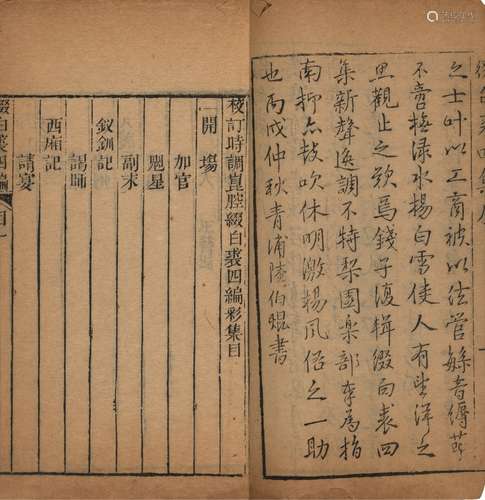 之士叶以工商被以法管絲音縟節
不啻橅淥水揚白雪使人有望洋之
思觀止之歎焉錢子復輯綴白裘四
集新聲逸調不特梨園樂部奉為指
南抑亦鼓吹休明激揚風俗之一助
也丙戌仲秋青浦陸伯焜書
校訂時調崑腔綴白裘四編彩集目
一開場
加官
魁星
副末
釵釧記
謁師
西廂記
請宴
綴白裘四編
目一